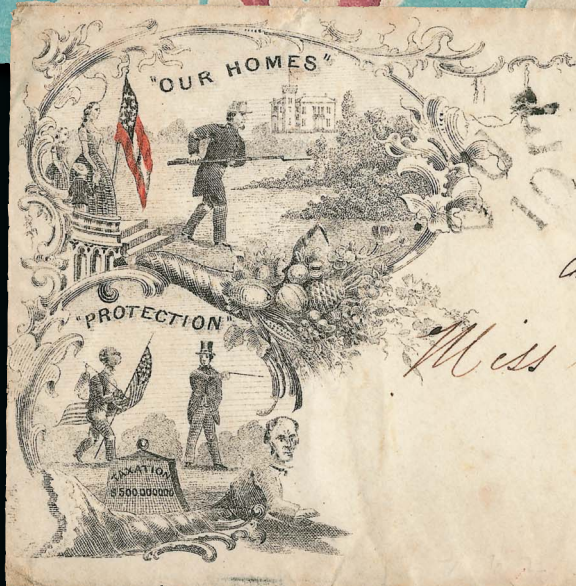 "OUR HOMES"
"PROTECTION"
TAXATION
$500000000
Miss